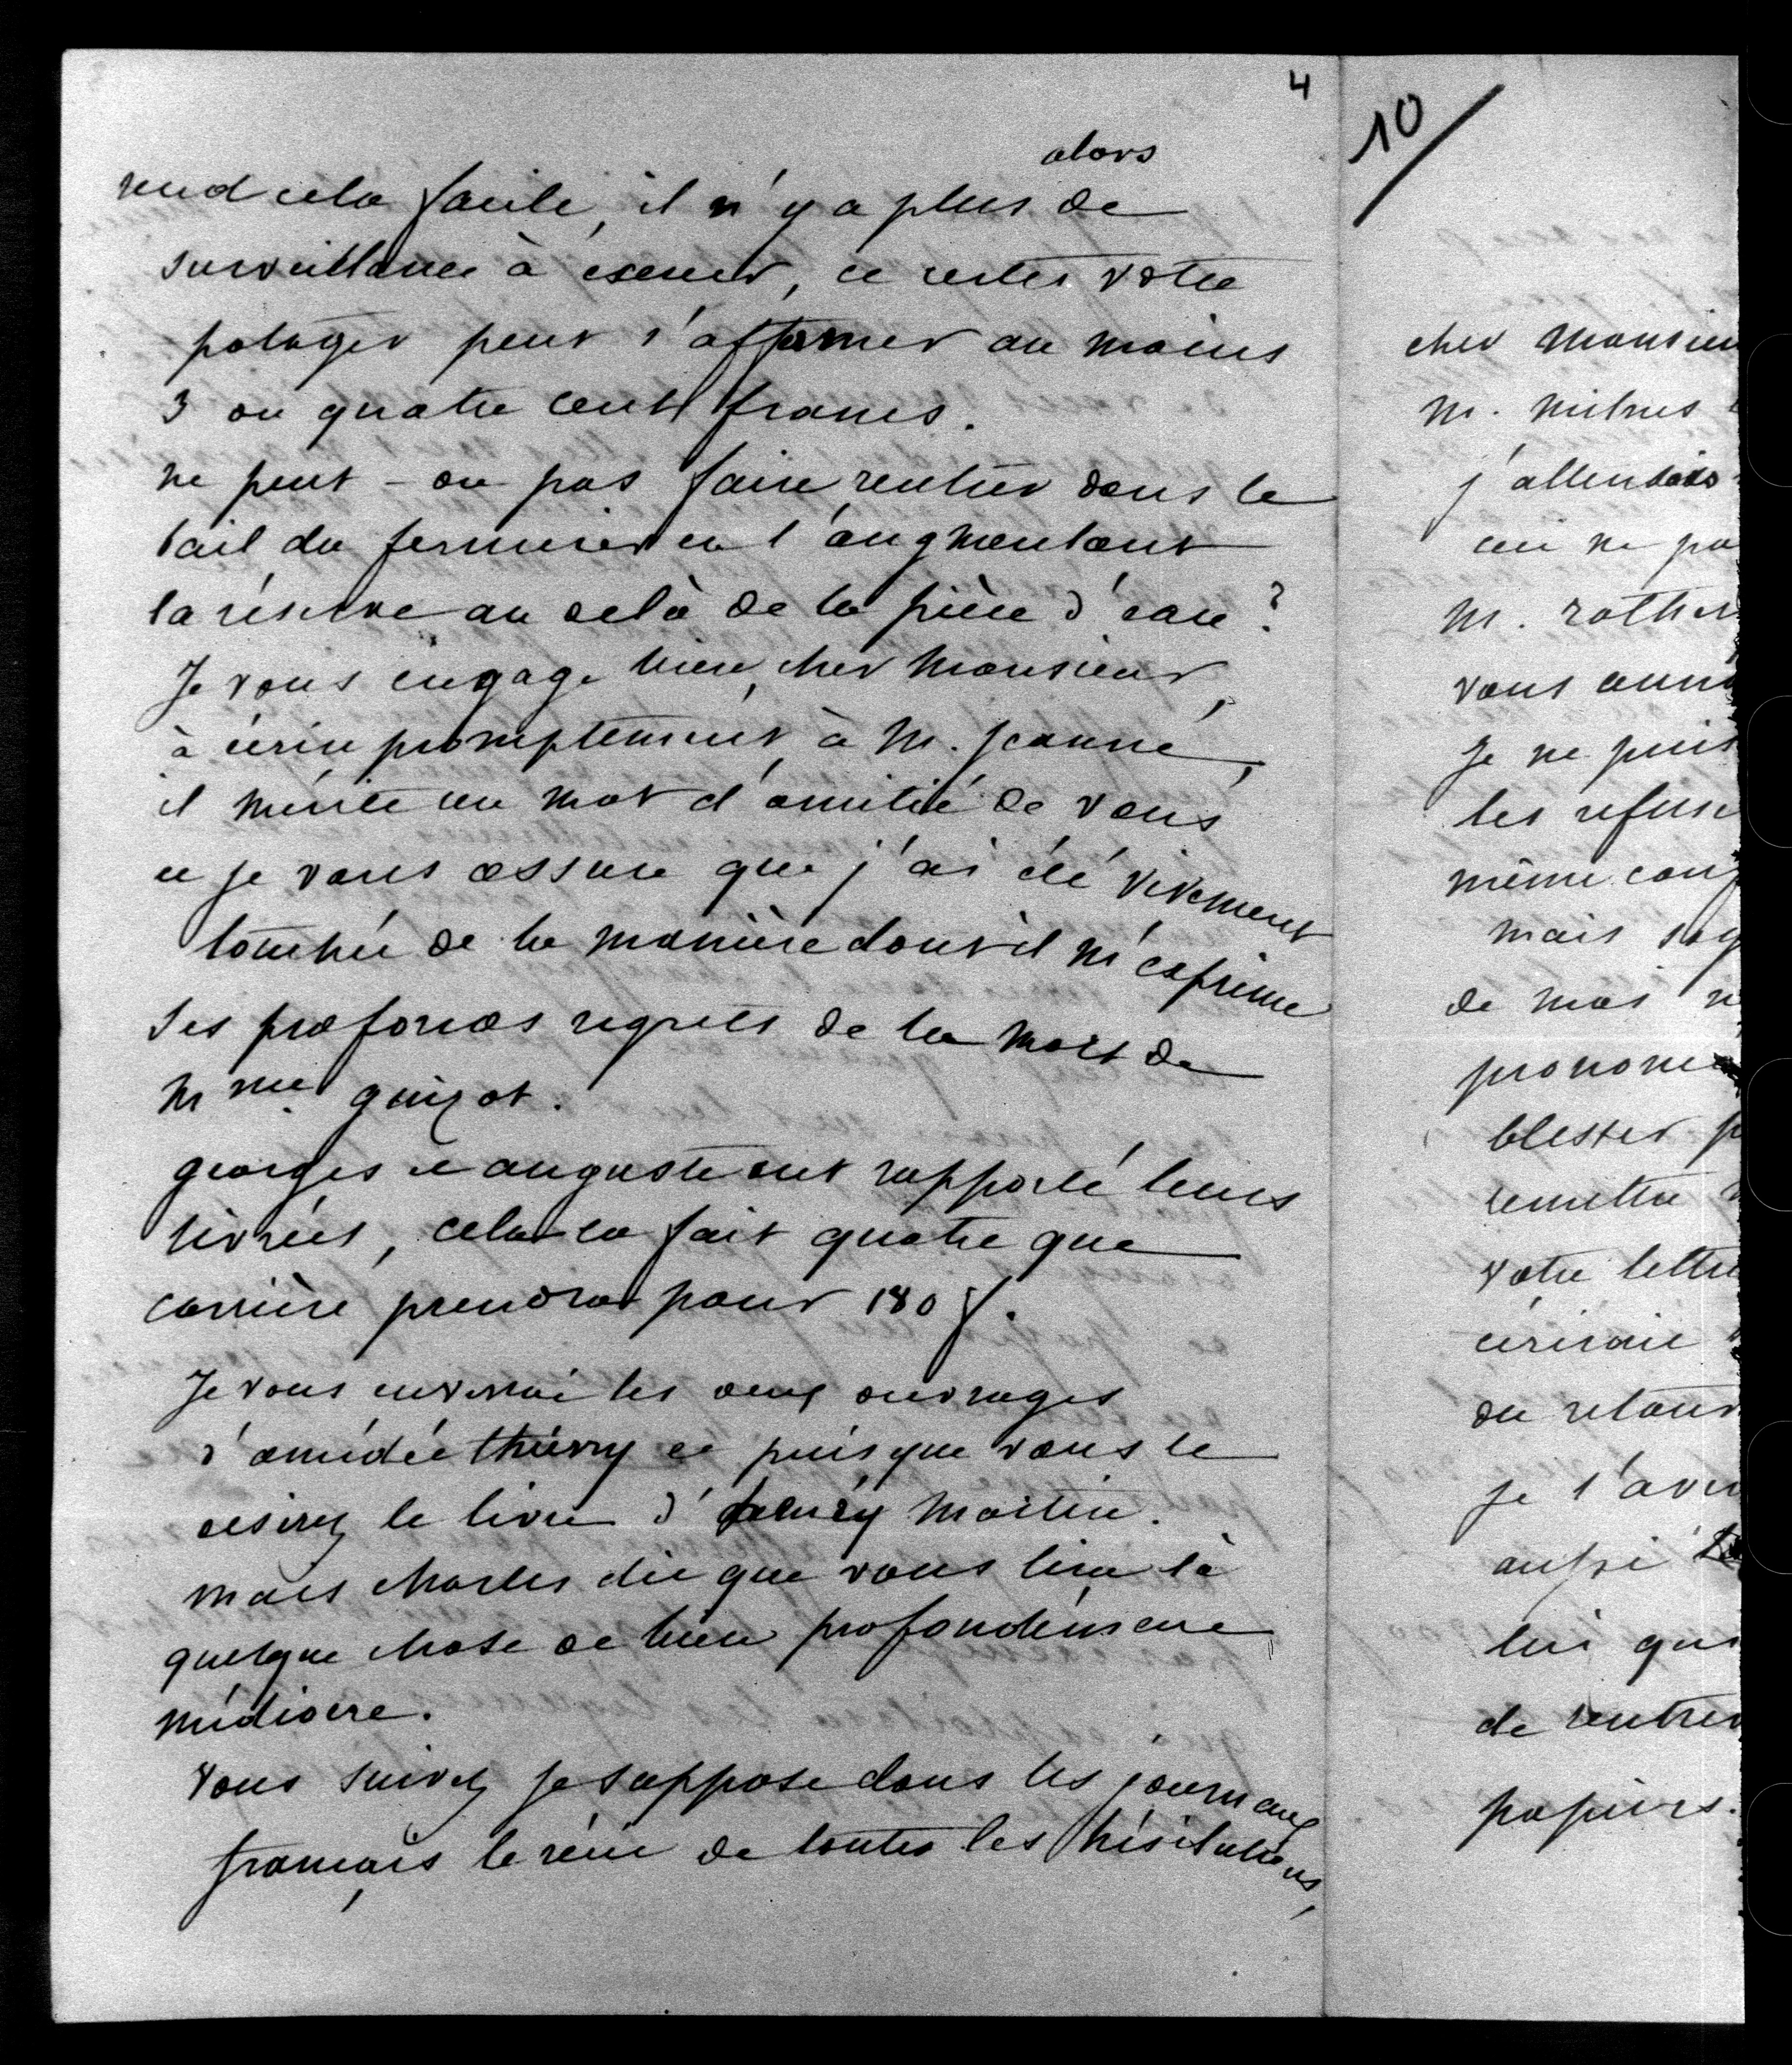 4
alors
rend cela facile, il n'y a plus de
surveillance à exercer, et restes votre
potager peut s'affermer au moins
3 ou quatre cent francs.
ne peut-on pas faire rentrer dans le
bail du fermier en l'augmentant
la réserve au delà de la pièce d'eau?
Je vous engage bien, cher Monsieur,
à écrire promptement à M. Jeanne,
il mérite un mot d'amitié de vous
et je vous assure que j'ai été vivement
touchée de la manière dont il m'exprime
ses profonds regrets de la mort de
Mme. guizot.
georges et auguste ont rapporté leurs
livrées, cela en fait quatre que
carrière prendra pour 180 f.
Je vous enverrai les deux ouvrages
d'amédée thierry et puisque vous le
désirez le livre d'henry Martin.
mais charles dit que vous lirez là
quelque chose de bien profondément
médiocre.
Vous suivez je suppose dans les journaux
français le récit de toutes les hésitations,
10
cher Monsieu
M. mitrus
j'attendais
ceci ne pa
M. rothsc
vous ann
Je ne puis
les refuse
même con
mais soy
de mas n
prononc
blesser p
remettre
votre lettre
écrirais
du retour
je l'aver
aussi
lui qui
de rentrer
papiers.